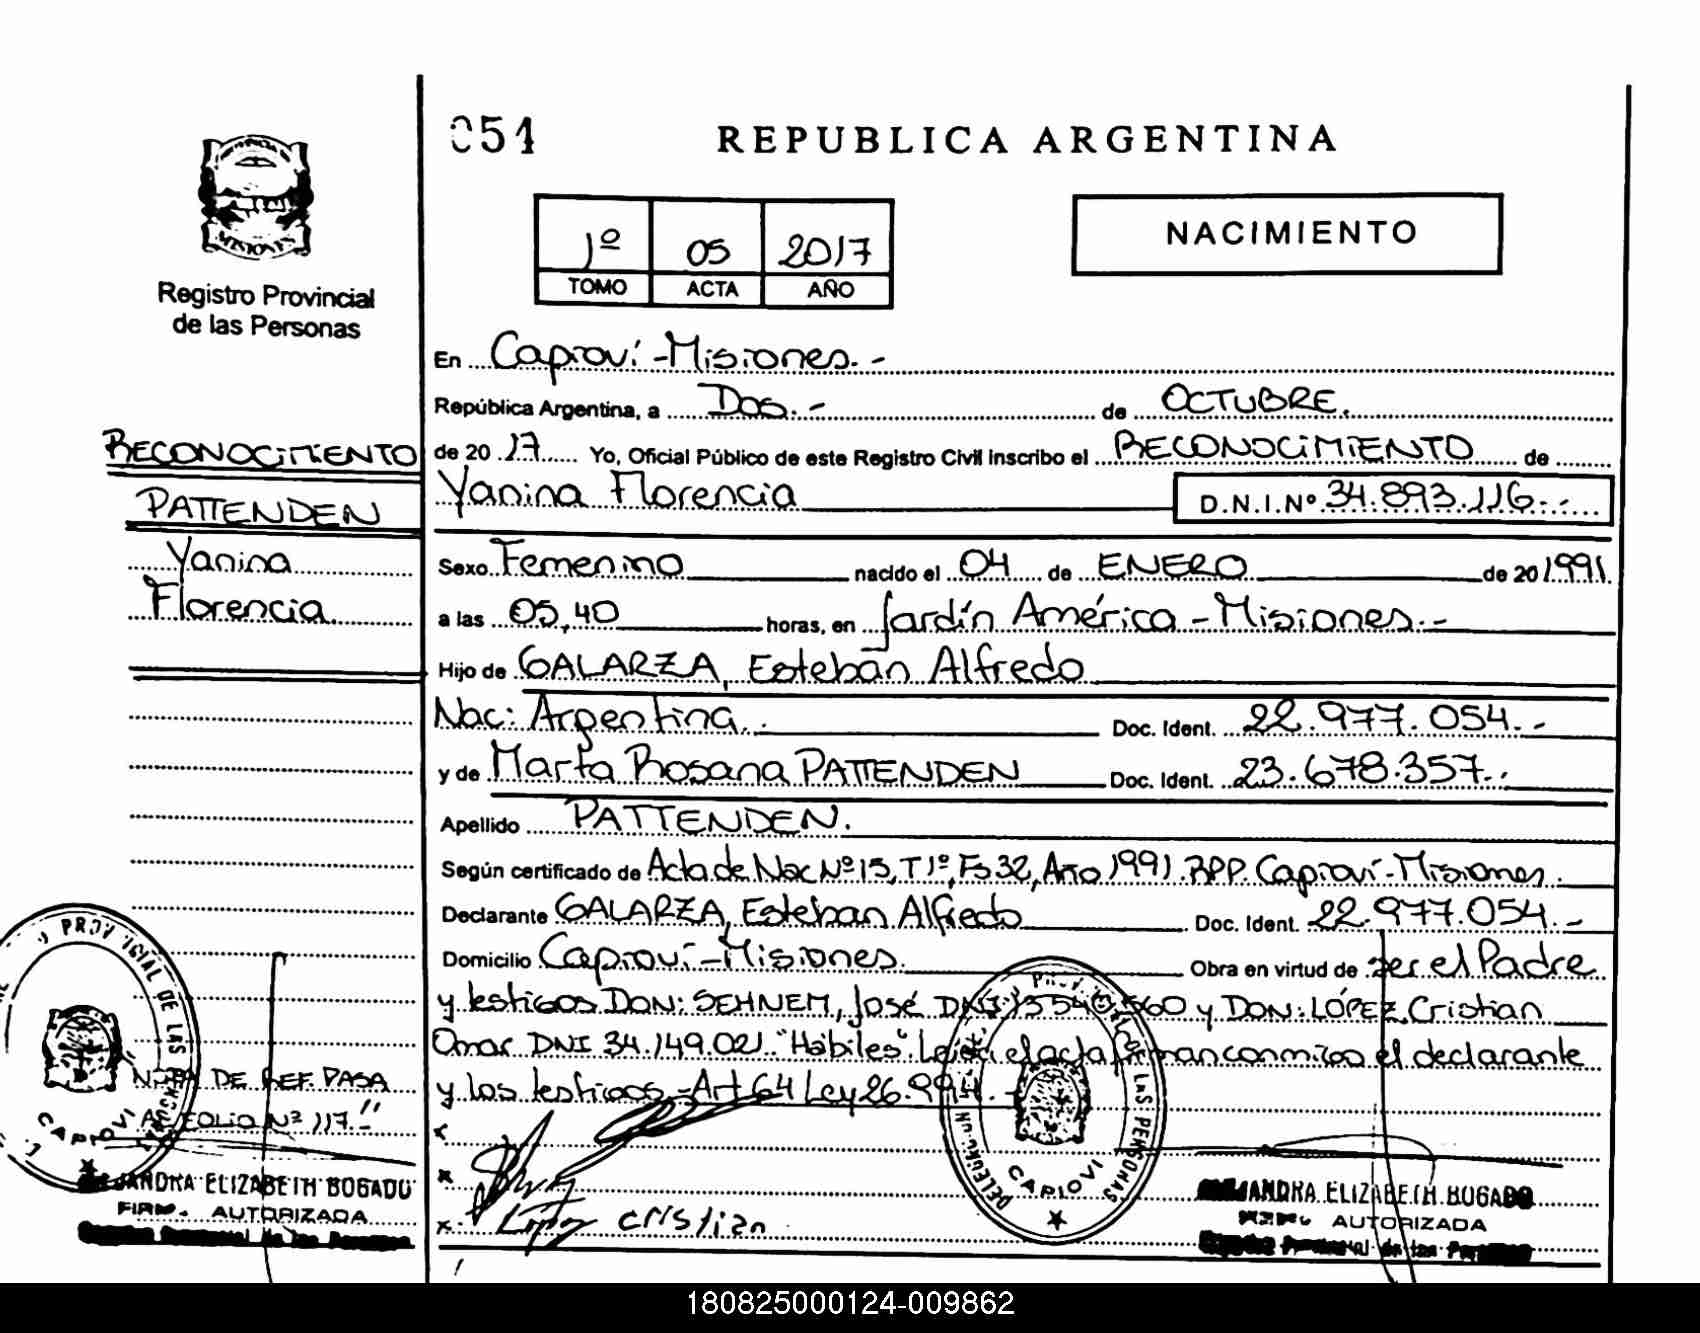 051
REPUBLICA ARGENTINA
MISIONES
Registro Provincial
de las Personas
1º 05 2017
TOMO ACTA AÑO
NACIMIENTO
RECONOCIMIENTO
PATTENDEN
Yanina
Florencia
En Capioví - Misiones.-
República Argentina, a Dos.- de OCTUBRE.
de 20 17 Yo, Oficial Público de este Registro Civil inscribo el RECONOCIMIENTO de
Yanina Florencia D.N.I.Nº 34.893.116.-
Sexo Femenino nacido el 04 de ENERO de 20 1991
a las 05,40 horas, en Jardín América - Misiones.-
Hijo de GALARZA, Esteban Alfredo
Nac: Argentina. Doc. Ident. 22.977.054.-
y de Marta Rosana PATTENDEN Doc. Ident. 23.678.357.-
Apellido PATTENDEN.
Según certificado de Acta de Nac Nº 15, T1º, Fs 32, Año 1991. RPP. Capioví - Misiones.
Declarante GALARZA, Esteban Alfredo Doc. Ident. 22.977.054.-
Domicilio Capioví - Misiones. Obra en virtud de ser el Padre
y testigos DON: SEHNEM, José DNI 13540560 y DON: LÓPEZ, Cristian
Omar DNI 34.149.021. "Hábiles". Leída el acta firman conmigo el declarante
y los testigos.- Art 64 Ley 26.994.-
NOTA DE REF. PASA
AL FOLIO Nº 117"
López Cristian
PROVINCIAL DE LAS PERSONAS
CAPIOVI
LAS PERSONAS
CAPIOVI
ELIZABETH BOGADO
AUTORIZADA
ELIZABETH BOGADO
AUTORIZADA
180825000124-009862